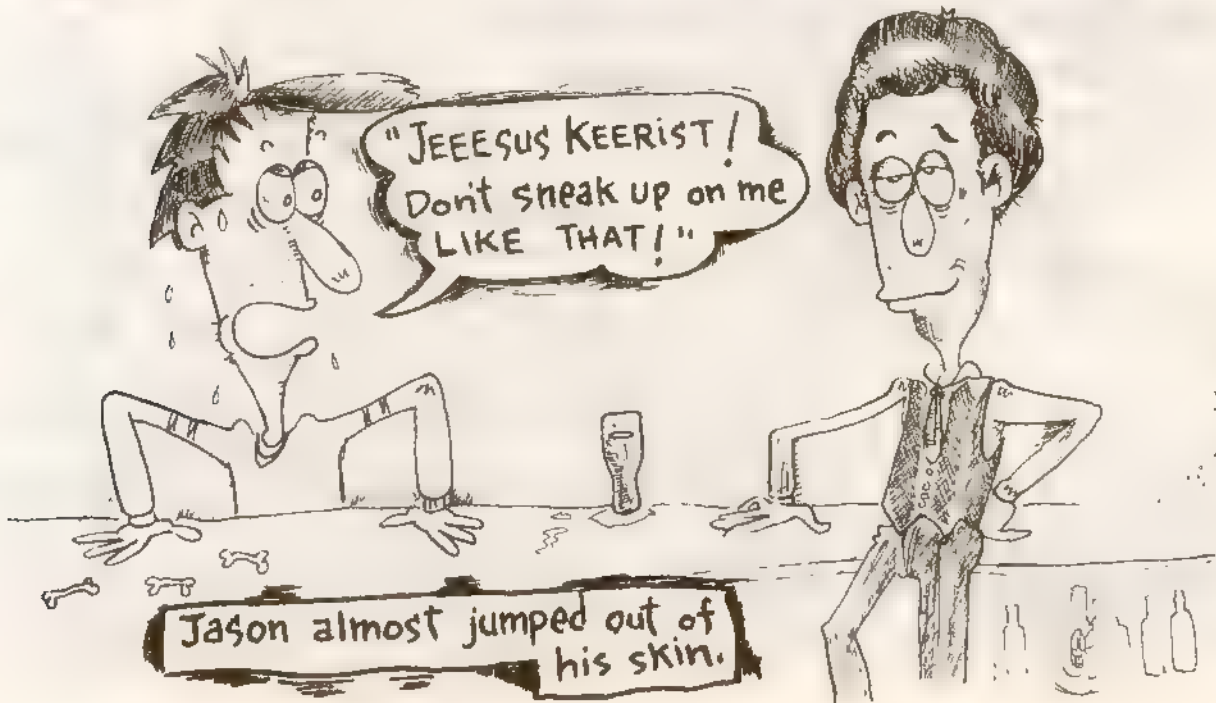 "JEEESUS KEERIST!
Don't sneak up on me
LIKE THAT!"
Jason almost jumped out of
his skin.